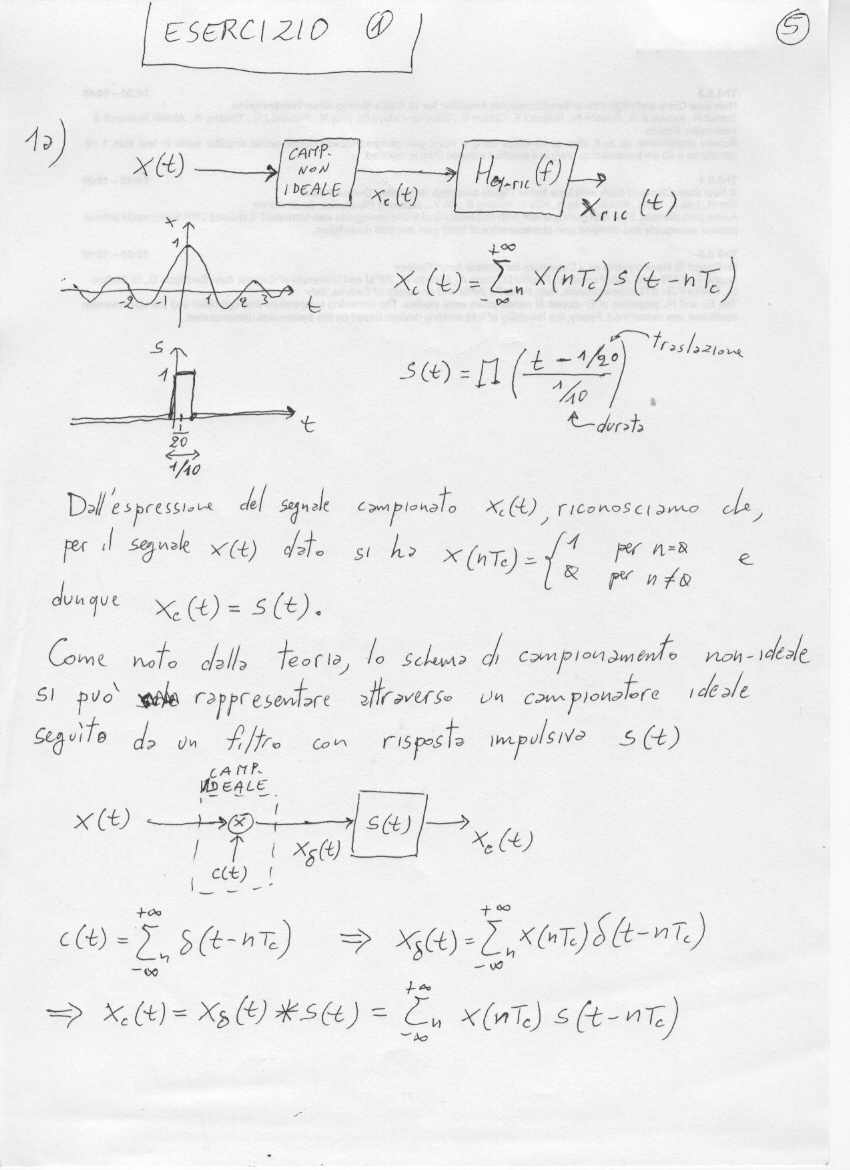 ESERCIZIO ①
⑤
1a)
X(t)
CAMP.
NON
IDEALE
x_c(t)
H_eq-ric(f)
x_ric(t)
x
1
-2 -1 1 2 3 t
X_c(t) = Σ_{-∞}^{+∞}_n X(nT_c) s(t-nT_c)
s
1
t
1/20
1/10
s(t) = Π((t - 1/20)/(1/10))
traslazione
durata
Dall'espressione del segnale campionato x_c(t), riconosciamo che,
per il segnale x(t) dato si ha x(nT_c) = { 1 per n=0 e
0 per n≠0
dunque x_c(t) = s(t).
Come noto dalla teoria, lo schema di campionamento non-ideale
si può rappresentare attraverso un campionatore ideale
seguito da un filtro con risposta impulsiva s(t)
CAMP.
IDEALE
X(t)
x
c(t)
x_δ(t)
s(t)
x_c(t)
c(t) = Σ_{-∞}^{+∞}_n δ(t-nT_c) ⇒ x_δ(t) = Σ_{-∞}^{+∞}_n x(nT_c) δ(t-nT_c)
⇒ x_c(t) = x_δ(t) * s(t) = Σ_{-∞}^{+∞}_n x(nT_c) s(t-nT_c)